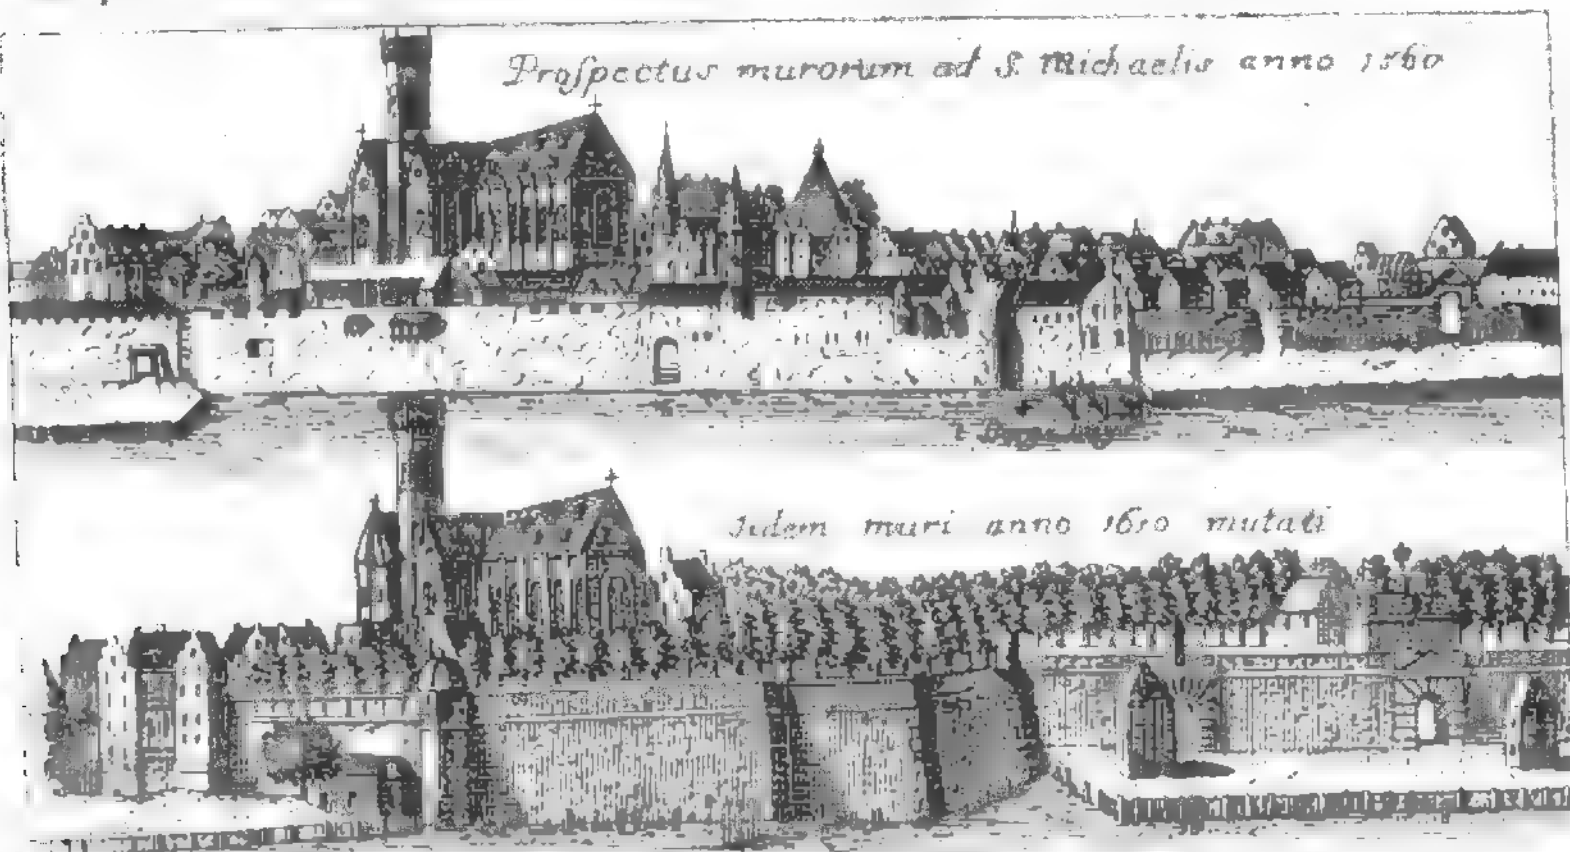 Prospectus murorum ad S. Michaelis anno 1560
Iidem muri anno 1610 mutati